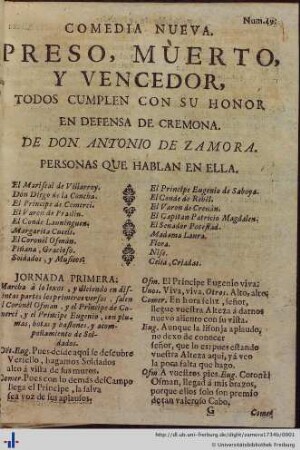 Num. 49.
COMEDIA NUEVA.
PRESO, MÙERTO,
Y VENCEDOR,
TODOS CUMPLEN CON SU HONOR
EN DEFENSA DE CREMONA.
DE DON ANTONIO DE ZAMORA.
PERSONAS QUE HABLAN EN ELLA.
El Mariscal de Villarroy.
Don Diego de la Concha.
El Principe de Comerci.
El Varon de
El Conde
Margarita
El Coronel Osmán.
Gracioso.
Soldados, y Musicos.
El Principe Eugenio de Saboya.
El Conde de
El Varon de
El Capitan Patricio Magdalen.
El Senador
Madama Laura.
Flora.
Nise.
Celia, Criadas.
JORNADA PRIMERA.
Marcha à lo lexos, y diciendo en
partes los primeros versos, salen
el Coronel Osman, y el Principe de
y el Principe Eugenio, con
mas, botas, y y
de
dados.
Eug. Pues desde aqui se descubre
hagamos Soldados
alto à vista de sus muros.
Comer. Pues con lo demàs del Campo
llega el Principe, la salva
sea voz de sus aplausos.
Osm. El Principe Eugenio viva:
Unos. Viva, viva. Otros. Alto, alto:
Comer. En hora feliz, señor,
llegue vuestra Alteza à darnos
nuevo aliento con su vista.
Eug. Aunque la lisonja aplaudo,
no dexo de conocer
señor, que lo es; pues estando
vuestra Alteza aquí, yà veo
la poca falta que hago.
Osm. A vuestros pies. Eug. Coronèl
Osman, llegad à mis brazos,
porque ellos solo son premio
de tan valeroso Cabo,
G
Comer.
http://dl.ub.uni-freiburg.de/diglit/zamora1734b/0001
© Universitätsbibliothek Freiburg